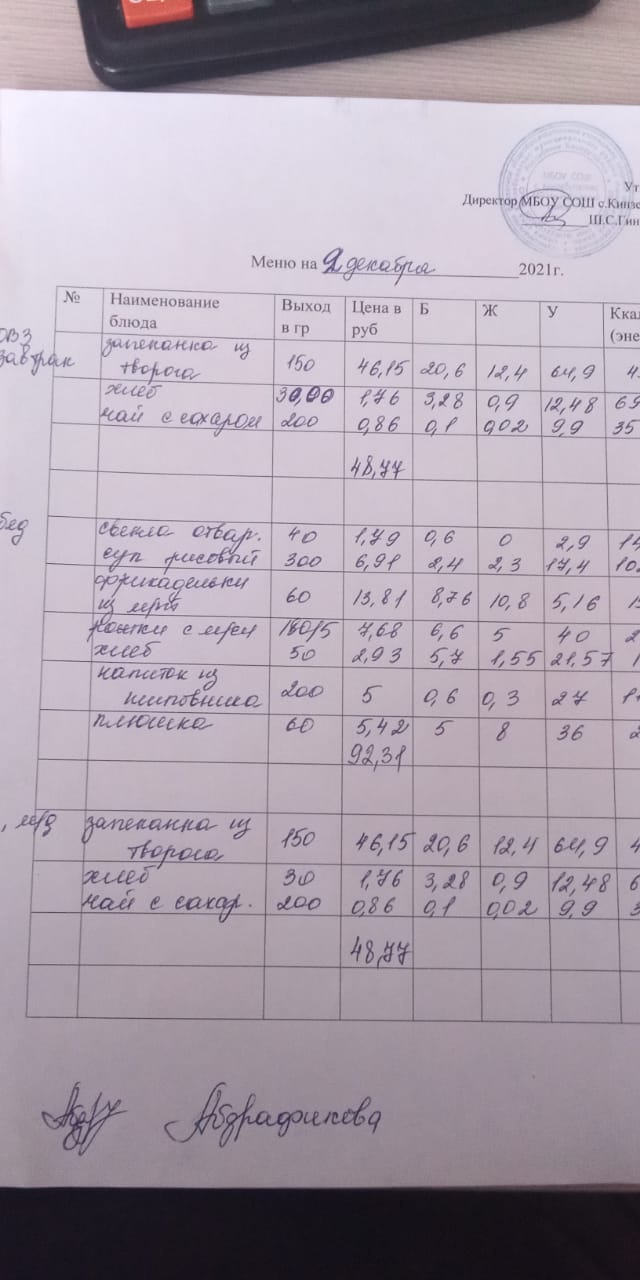 МБОУ СОШ
Ут
Директор МБОУ СОШ с.Кинзе
Ш.С.Гин
Меню на 2 декабря 2021г.
№ Наименование блюда Выход в гр Цена в руб Б Ж У Ккал (эне
ОВЗ завтрак запеканка из творога 150 46,15 20,6 12,4 64,9 4
хлеб 30,00 1,76 3,28 0,9 12,48 69
чай с сахаром 200 0,86 0,1 0,02 9,9 35
48,77
бед свекла отвар. 40 1,79 0,6 0 2,9 14
суп рисовый 300 6,91 2,4 2,3 17,4 10
фрикадельки из 60 13,81 8,76 10,8 5,16 1
рожки с 7,68 6,6 5 40 2
хлеб 50 2,93 5,7 1,55 21.57 1
напиток из шиповника 200 5 0,6 0,3 27 11
плюшка 60 5,42 5 8 36 2
92,31
запеканка из творога 150 46,15 20,6 12,4 64,9 4
хлеб 30 1,76 3,28 0,9 12,48 6
чай с сахар. 200 0,86 0,1 0,02 9,9 3
48,77
Абдрафикова